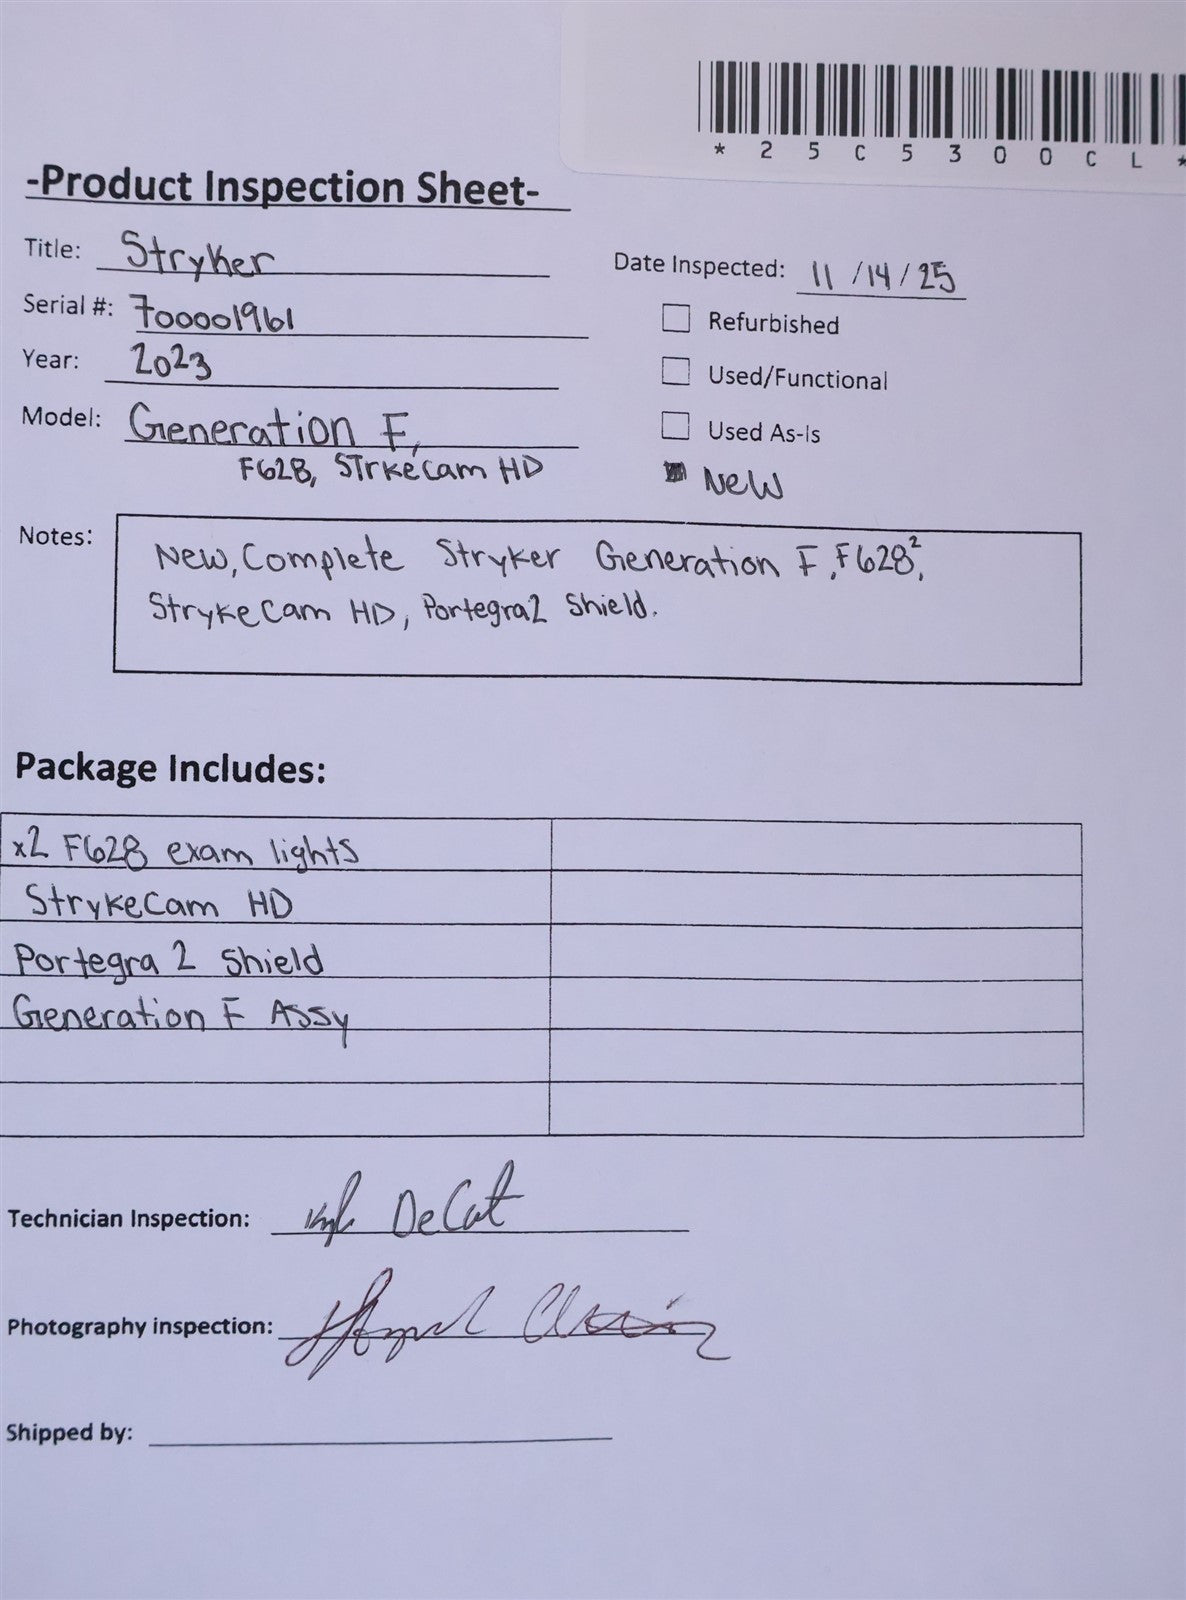 *25C5300CL*
-Product Inspection Sheet-
Title: Stryker
Date Inspected: 11/14/25
Serial #: 700001961
Refurbished
Year: 2023
Used/Functional
Model: Generation F,
F628, STrkeCam HD
Used As-Is
New
Notes: New, Complete Stryker Generation F, F628²,
StrykeCam HD, Portegra2 Shield.
Package Includes:
x2 F628 exam lights
StrykeCam HD
Portegra 2 Shield
Generation F Assy
Technician Inspection: Kyle DeCat
Photography inspection:
Shipped by: